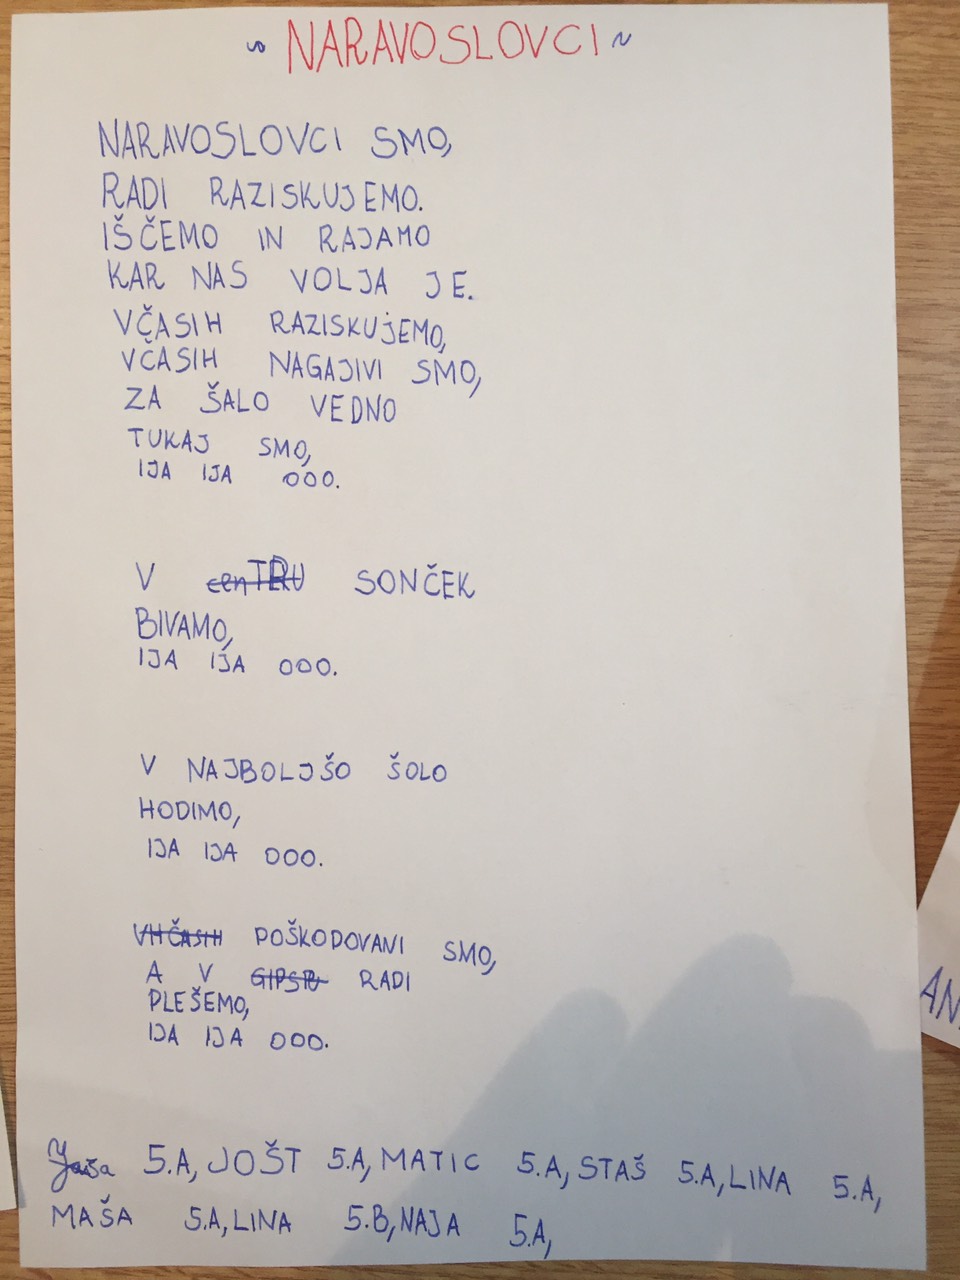 ~ NARAVOSLOVCI ~
NARAVOSLOVCI SMO,
RADI RAZISKUJEMO.
IŠČEMO IN RAJAMO
KAR NAS VOLJA JE.
VČASIH RAZISKUJEMO,
VČASIH NAGAJIVI SMO,
ZA ŠALO VEDNO
TUKAJ SMO,
IJA IJA OOO.
V cenTRU SONČEK
BIVAMO,
IJA IJA OOO.
V NAJBOLJŠO ŠOLO
HODIMO,
IJA IJA OOO.
VHČASIH POŠKODOVANI SMO,
A V GIPSU RADI
PLEŠEMO,
IJA IJA OOO.
5.A, JOŠT 5.A, MATIC 5.A, STAŠ 5.A, LINA 5.A,
MAŠA 5.A, LINA 5.B, NAJA 5.A,